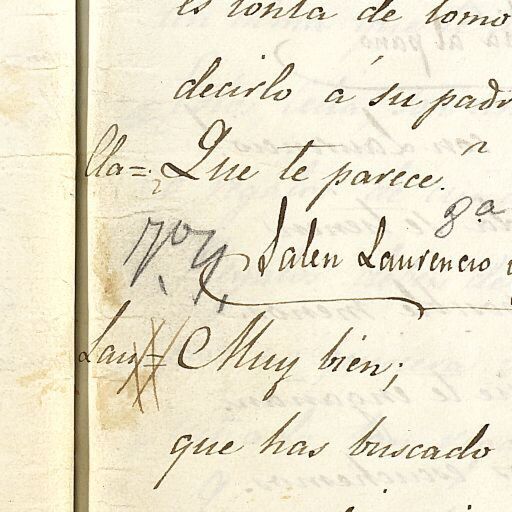 es tonta de tomo
decirlo á su padr
Cla=¿ Que te parece?
8ª
Salen Laurencio
Lau= Muy bien;
que has buscado